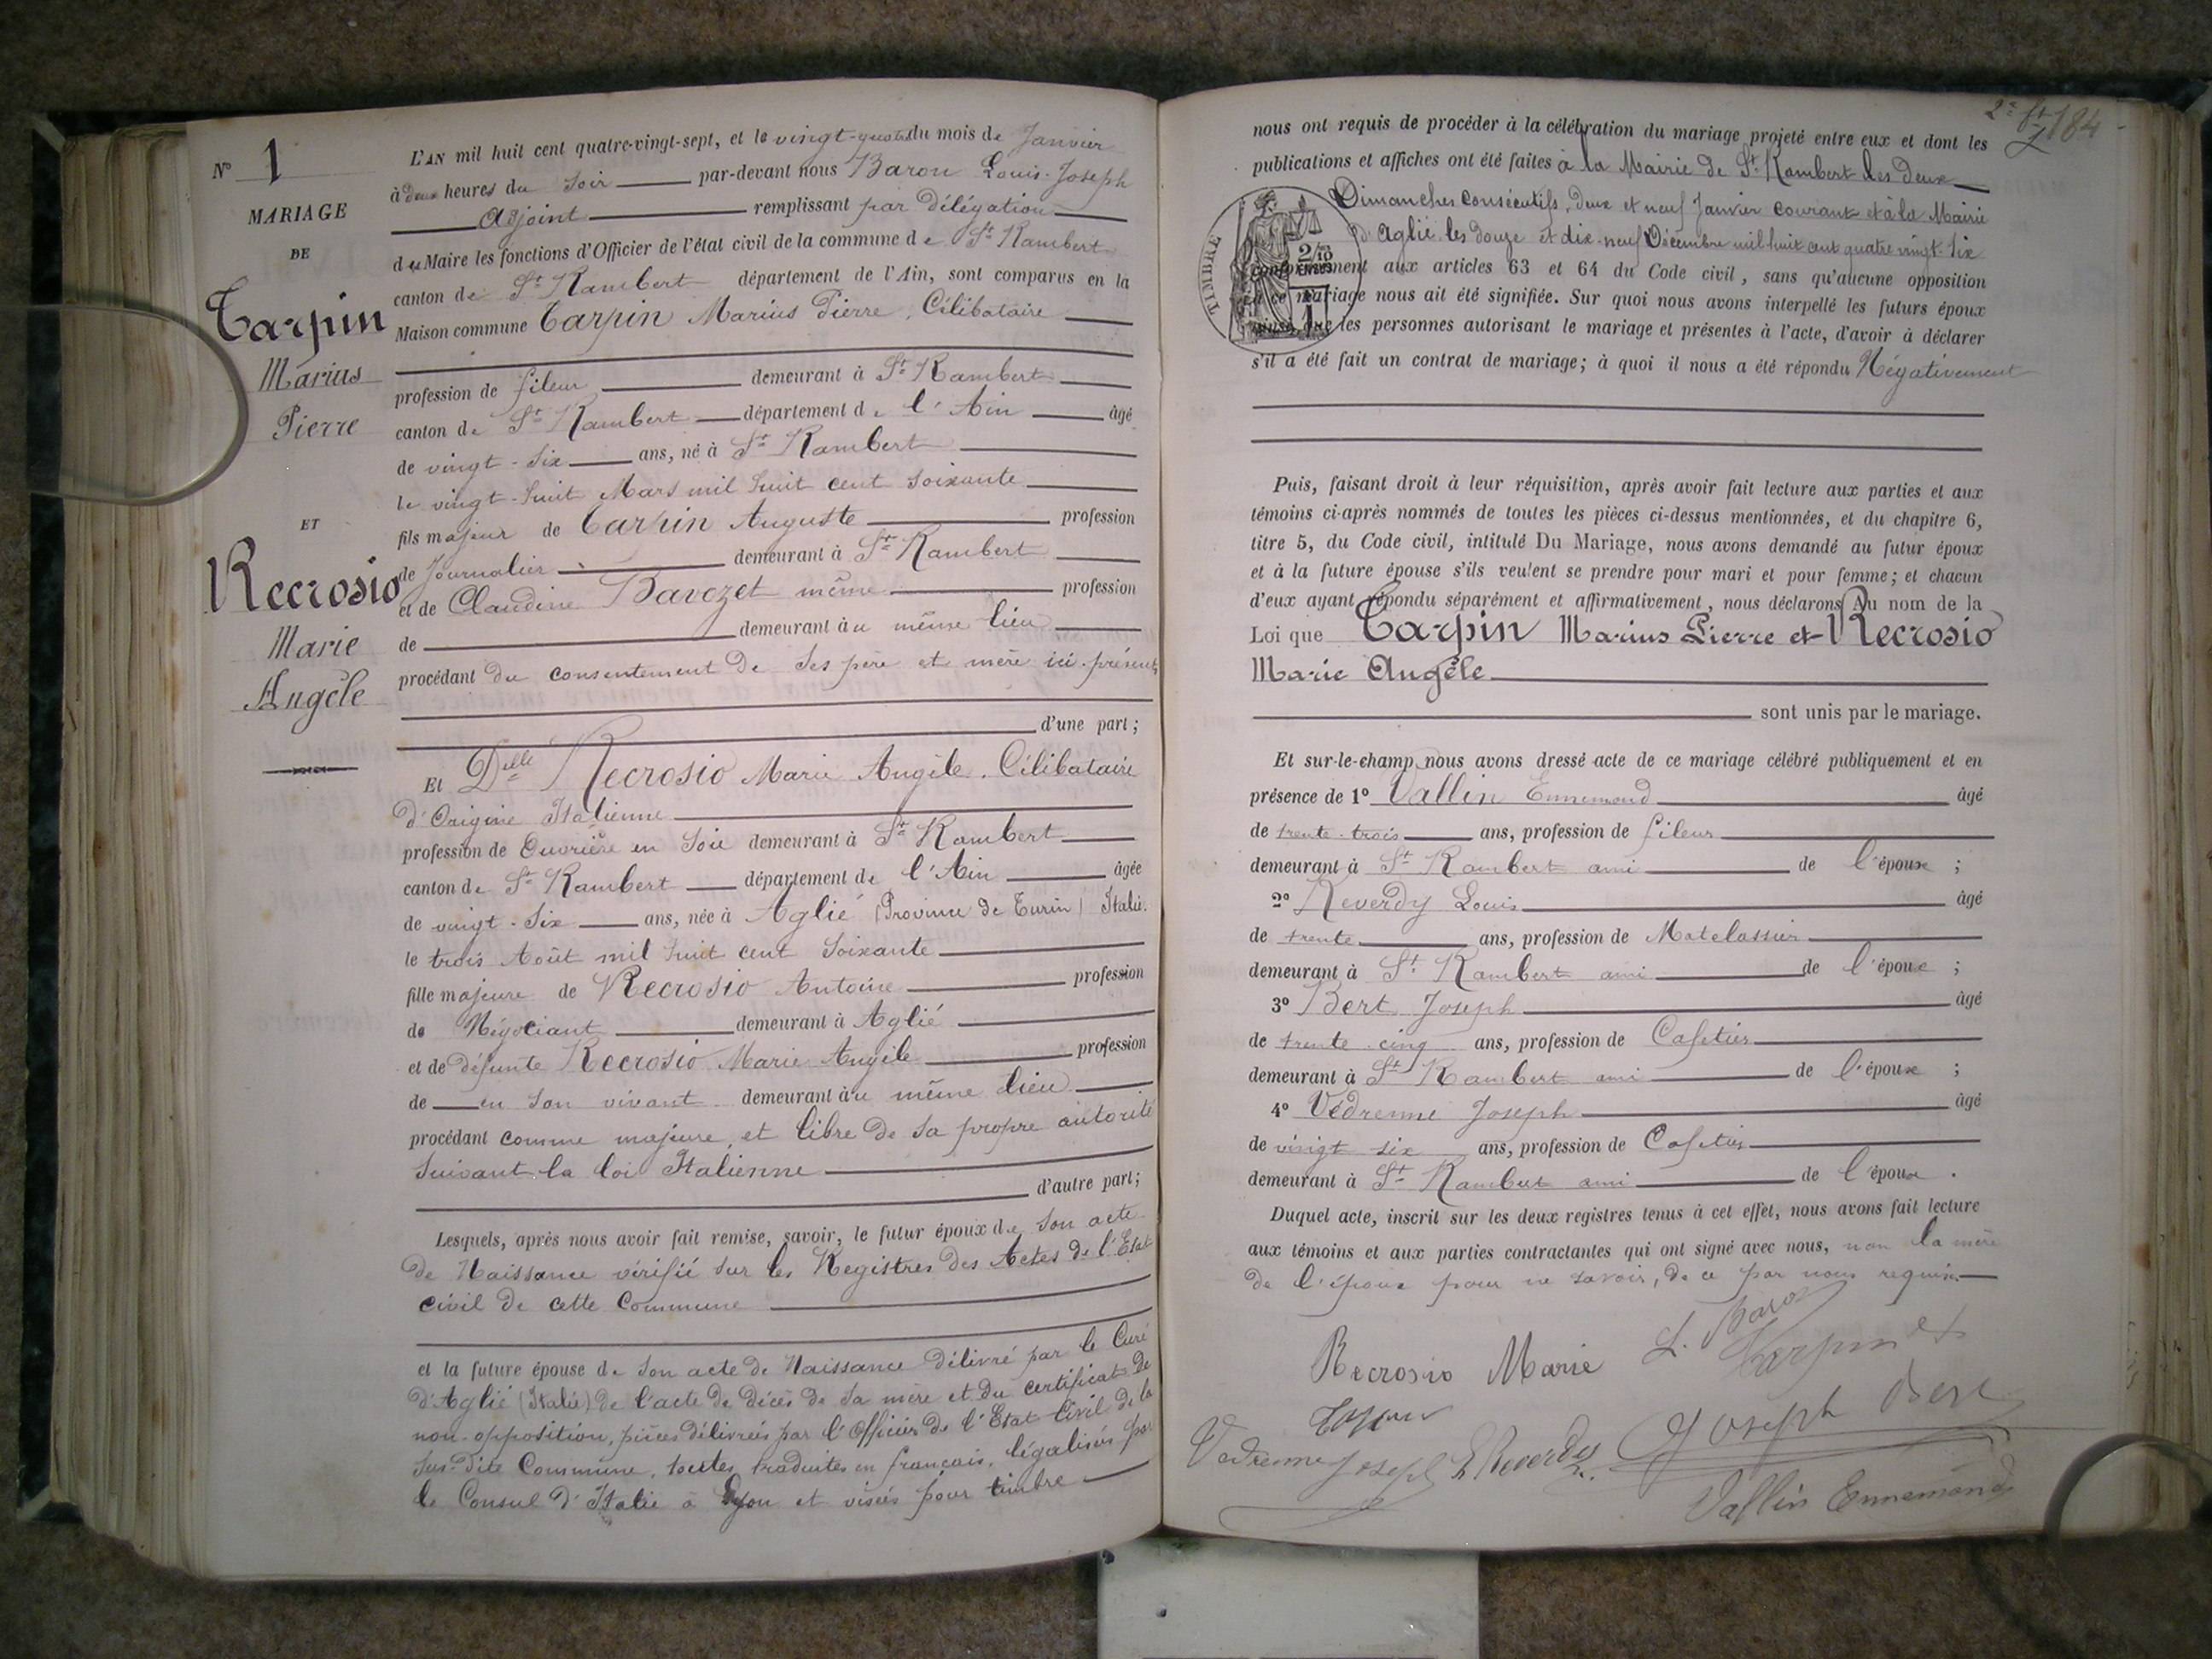 N° 1
MARIAGE
DE
Tarpin
Marius
Pierre
ET
Recrosio
Marie
Angèle
L'AN mil huit cent quatre-vingt-sept, et le vingt-quatre du mois de Janvier
à deux heures du soir par-devant nous Baron Louis-Joseph
adjoint remplissant par délégation
du Maire les fonctions d'Officier de l'état civil de la commune de St Rambert
canton de St Rambert département de l'Ain, sont comparus en la
Maison commune Tarpin Marius Pierre, Célibataire
profession de fileur demeurant à St Rambert
canton de St Rambert département de l'Ain âgé
de vingt-six ans, né à St Rambert
le vingt-huit Mars mil huit cent soixante
fils majeur de Tarpin Auguste profession
de Journalier demeurant à St Rambert
et de Claudine Bavozet même profession
de demeurant au même lieu
procédant du consentement de ses père et mère ici présents
d'une part;
Et Delle Recrosio Marie Angèle. Célibataire
d'Origine Italienne
profession de Ouvrière en Soie demeurant à St Rambert
canton de St Rambert département de l'Ain âgée
de vingt-six ans, née à Aglié (Province de Turin) Italie.
le trois Août mil huit cent soixante
fille majeure de Recrosio Antoine profession
de Négociant demeurant à Aglié
et de défunte Recrosio Marie Angèle profession
de en son vivant demeurant au même lieu
procédant comme majeure et libre de sa propre autorité
suivant la loi Italienne
d'autre part;
Lesquels, après nous avoir fait remise, savoir, le futur époux de son acte
de Naissance vérifié sur les Registres des Actes de l'Etat
civil de cette Commune
et la future épouse de son acte de Naissance délivré par le Curé
d'Aglié (Italie) de l'acte de décès de sa mère et du certificat de
non-opposition, pièces délivrées par l'Officier de l'Etat Civil de la
sus-dite Commune, toutes traduites en français, légalisées par
le Consul d'Italie à Lyon et visées pour timbre
184
nous ont requis de procéder à la célébration du mariage projeté entre eux et dont les
publications et affiches ont été faites à la Mairie de St Rambert les deux
Dimanches consécutifs, deux et neuf Janvier courant et à la Mairie
d'Aglié les douze et dix-neuf Décembre mil huit cent quatre vingt-six
TIMBRE
2/10
conformément aux articles 63 et 64 du Code civil, sans qu'aucune opposition
à ce mariage nous ait été signifiée. Sur quoi nous avons interpellé les futurs époux
ainsi que les personnes autorisant le mariage et présentes à l'acte, d'avoir à déclarer
s'il a été fait un contrat de mariage; à quoi il nous a été répondu Négativement
Puis, faisant droit à leur réquisition, après avoir fait lecture aux parties et aux
témoins ci-après nommés de toutes les pièces ci-dessus mentionnées, et du chapitre 6,
titre 5, du Code civil, intitulé Du Mariage, nous avons demandé au futur époux
et à la future épouse s'ils veulent se prendre pour mari et pour femme; et chacun
d'eux ayant répondu séparément et affirmativement, nous déclarons Au nom de la
Loi que Tarpin Marius Pierre et Recrosio
Marie Angèle
sont unis par le mariage.
Et sur-le-champ nous avons dressé acte de ce mariage célébré publiquement et en
présence de 1° Vallin Ennemond âgé
de trente-trois ans, profession de fileur
demeurant à St Rambert ami de l'époux ;
2° Reverdy Louis âgé
de trente ans, profession de Matelassier
demeurant à St Rambert ami de l'époux ;
3° Bert Joseph âgé
de trente-cinq ans, profession de Cafetier
demeurant à St Rambert ami de l'époux ;
4° Védrenne Joseph âgé
de vingt six ans, profession de Cafetier
demeurant à St Rambert ami de l'époux .
Duquel acte, inscrit sur les deux registres tenus à cet effet, nous avons fait lecture
aux témoins et aux parties contractantes qui ont signé avec nous, non la mère
de l'époux pour ne savoir, de ce par nous requise
Recrosio Marie L. Baron
Tarpin
Vedrenne Joseph L Reverdy Joseph Bert
Vallin Ennemond